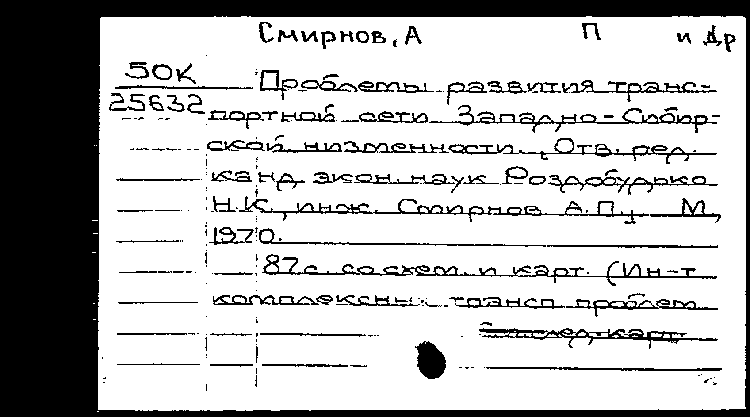 Смирнов, А П и др
50К
25632
Проблемы развития транс-
портной сети Западно-Сибир-
ской низменности. Отв. ред.
канд. экон. наук Роздобудько
Н.К., инж. Смирнов А.П. М.,
1970.
87с. со схем. и карт. (Ин-т
комплексных трансп. проблем
след. карт